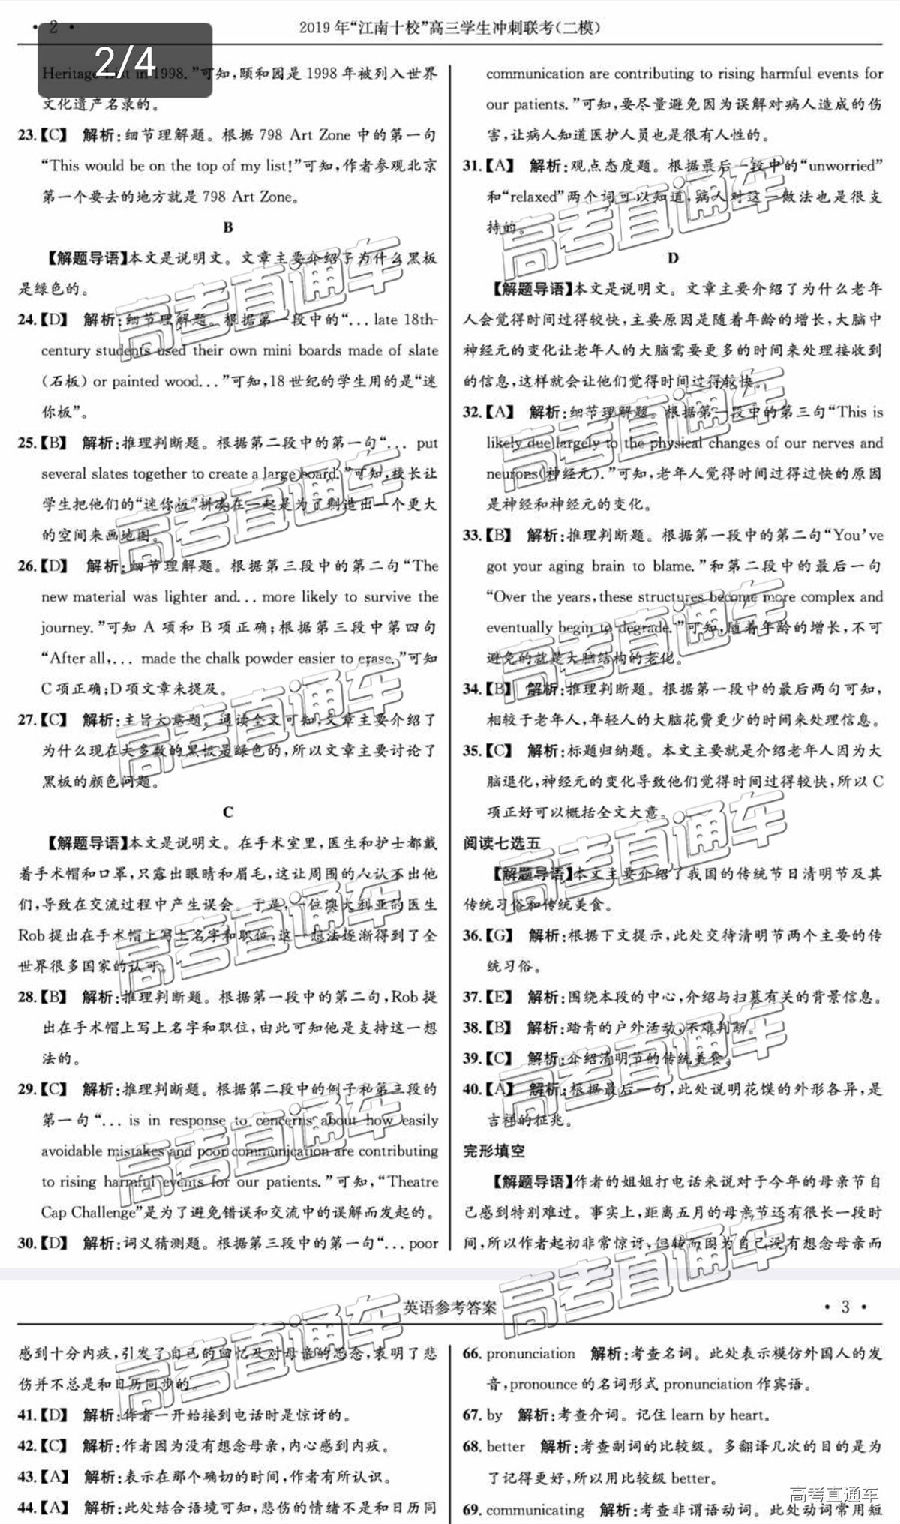 • 2 •
2019年“江南十校”高三学生冲刺联考(二模)
2/4
Heritage List in 1998.”可知,颐和园是1998年被列入世界
文化遗产名录的。
23.【C】 解析:细节理解题。根据798 Art Zone中的第一句
“This would be on the top of my list!”可知,作者参观北京
第一个要去的地方就是798 Art Zone。
B
【解题导语】本文是说明文。文章主要介绍了为什么黑板
是绿色的。
24.【D】 解析:细节理解题。根据第一段中的“... late 18th-
century students used their own mini boards made of slate
(石板) or painted wood...”可知,18世纪的学生用的是“迷
你板”。
25.【B】 解析:推理判断题。根据第二段中的第一句“... put
several slates together to create a large board.”可知,校长让
学生把他们的“迷你板”拼凑在一起是为了制造出一个更大
的空间来画地图。
26.【D】 解析:细节理解题。根据第三段中的第二句“The
new material was lighter and... more likely to survive the
journey.”可知A项和B项正确;根据第三段中第四句
“After all,... made the chalk powder easier to erase.”可知
C项正确;D项文章未提及。
27.【C】 解析:主旨大意题。通读全文可知,文章主要介绍了
为什么现在大多数的黑板是绿色的,所以文章主要讨论了
黑板的颜色问题。
C
【解题导语】本文是说明文。在手术室里,医生和护士都戴
着手术帽和口罩,只露出眼睛和眉毛,这让周围的人认不出他
们,导致在交流过程中产生误会。于是,一位澳大利亚的医生
Rob提出在手术帽上写上名字和职位,这一想法逐渐得到了全
世界很多国家的认可。
28.【B】 解析:推理判断题。根据第一段中的第二句,Rob提
出在手术帽上写上名字和职位,由此可知他是支持这一想
法的。
29.【C】 解析:推理判断题。根据第二段中的例子和第三段的
第一句“... is in response to concerns about how easily
avoidable mistakes and poor communication are contributing
to rising harmful events for our patients.”可知,“Theatre
Cap Challenge”是为了避免错误和交流中的误解而发起的。
30.【D】 解析:词义猜测题。根据第三段中的第一句“... poor
communication are contributing to rising harmful events for
our patients.”可知,要尽量避免因为误解对病人造成的伤
害,让病人知道医护人员也是很有人性的。
31.【A】 解析:观点态度题。根据最后一段中的“unworried”
和“relaxed”两个词可以知道,病人对这一做法也是很支
持的。
D
【解题导语】本文是说明文。文章主要介绍了为什么老年
人会觉得时间过得较快,主要原因是随着年龄的增长,大脑中
神经元的变化让老年人的大脑需要更多的时间来处理接收到
的信息,这样就会让他们觉得时间过得较快。
32.【A】 解析:细节理解题。根据第一段中的第三句“This is
likely due largely to the physical changes of our nerves and
neurons(神经元).”可知,老年人觉得时间过得过快的原因
是神经和神经元的变化。
33.【B】 解析:推理判断题。根据第一段中的第二句“You've
got your aging brain to blame.”和第二段中的最后一句
“Over the years, these structures become more complex and
eventually begin to degrade.”可知,随着年龄的增长,不可
避免的就是大脑结构的老化。
34.【B】 解析:推理判断题。根据第一段中的最后两句可知,
相较于老年人,年轻人的大脑花费更少的时间来处理信息。
35.【C】 解析:标题归纳题。本文主要就是介绍老年人因为大
脑退化,神经元的变化导致他们觉得时间过得较快,所以C
项正好可以概括全文大意。
阅读七选五
【解题导语】本文主要介绍了我国的传统节日清明节及其
传统习俗和传统美食。
36.【G】 解析:根据下文提示,此处交待清明节两个主要的传
统习俗。
37.【E】 解析:围绕本段的中心,介绍与扫墓有关的背景信息。
38.【B】 解析:踏青的户外活动,不难判断。
39.【C】 解析:介绍清明节的传统美食。
40.【A】 解析:根据最后一句,此处说明花馍的外形各异,是
吉祥的征兆。
完形填空
【解题导语】作者的姐姐打电话来说对于今年的母亲节自
己感到特别难过。事实上,距离五月的母亲节还有很长一段时
间,所以作者起初非常惊讶,但转而因为自己没有想念母亲而
英语参考答案
• 3 •
感到十分内疚,引发了自己的回忆及对母亲的思念,表明了悲
伤并不总是和日历同步的。
41.【D】 解析:作者一开始接到电话时是惊讶的。
42.【C】 解析:作者因为没有想念母亲,内心感到内疚。
43.【A】 解析:表示在那个确切的时间,作者有所认识。
44.【A】 解析:此处结合语境可知,悲伤的情绪不是和日历同
66. pronunciation 解析:考查名词。此处表示模仿外国人的发
音,pronounce的名词形式pronunciation作宾语。
67. by 解析:考查介词。记住learn by heart。
68. better 解析:考查副词的比较级。多翻译几次的目的是为
了记得更好,所以用比较级better。
69. communicating 解析:考查非谓语动词。此处动词常用短
高考直通车